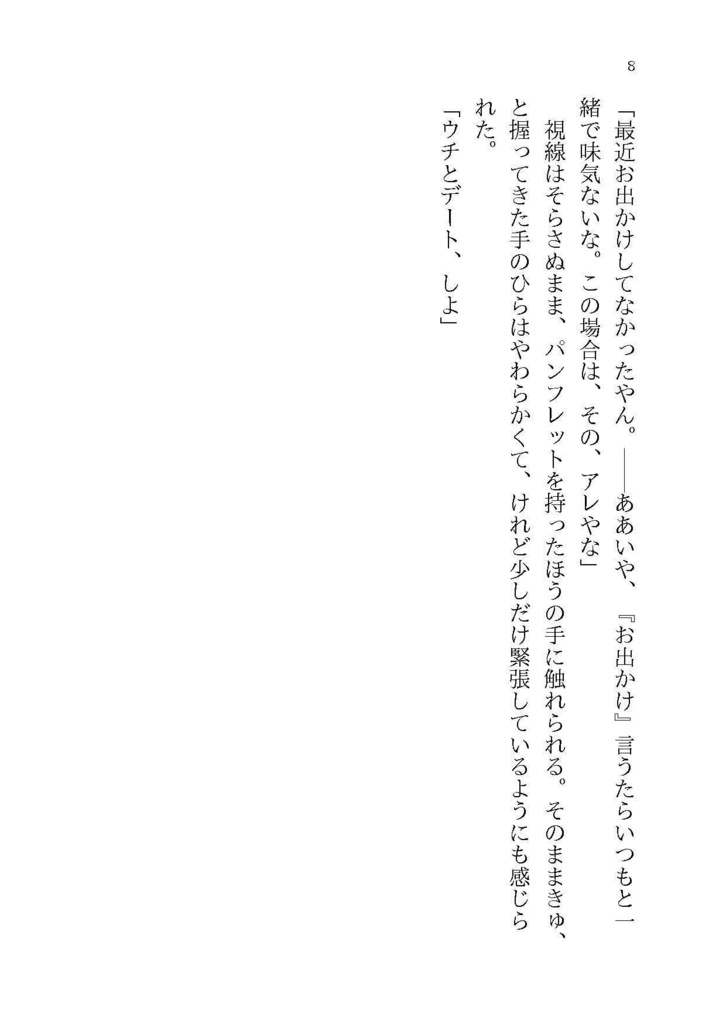 8
「最近お出かけしてなかったやん。――ああいや、『お出かけ』言うたらいつもと一
緒で味気ないな。この場合は、その、アレやな」
　視線はそらさぬまま、パンフレットを持ったほうの手に触れられる。そのままきゅ、
と握ってきた手のひらはやわらかくて、けれど少しだけ緊張しているようにも感じら
れた。
「ウチとデート、しよ」